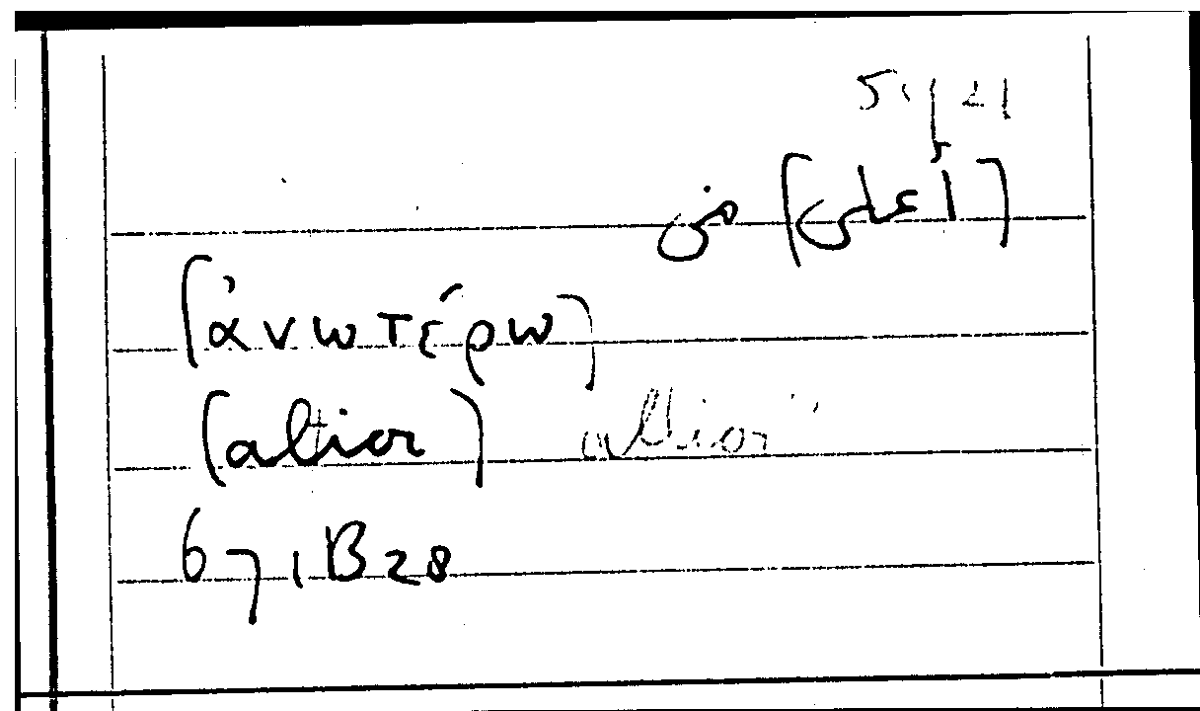 (أعلى) من
(ἀνωτέρω)
(altior) altior
671B28